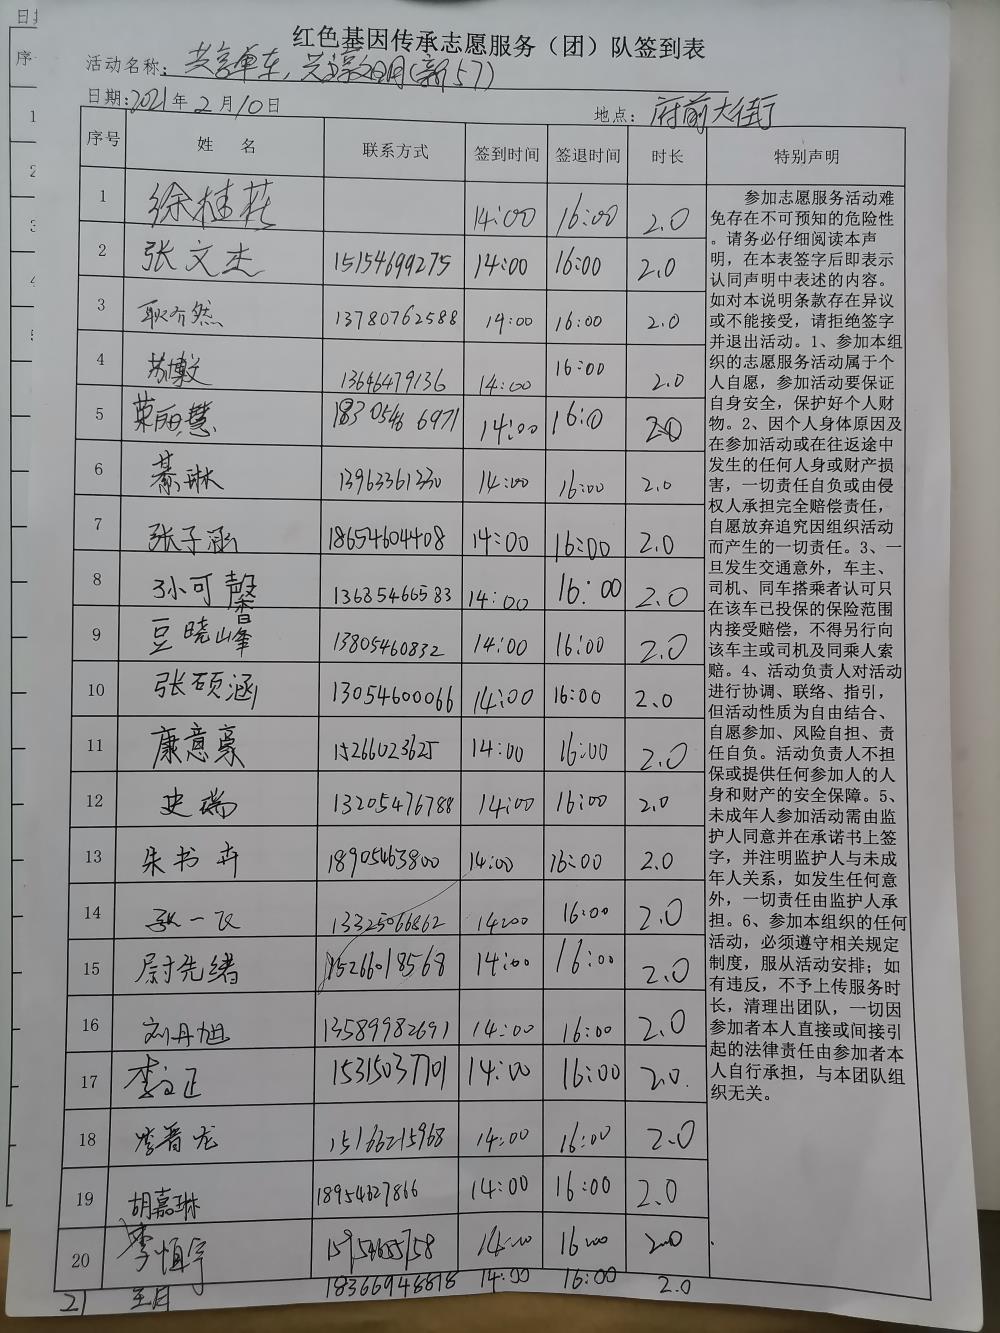 红色基因传承志愿服务（团）队签到表
活动名称：共享单车，文明(新57)
日期：2021年2月10日 地点：府前大街
序号 姓名 联系方式 签到时间 签退时间 时长 特别声明
1 徐桂花 14:00 16:00 2.0
2 张文杰 15154699275 14:00 16:00 2.0
3 耿介然 13780762588 14:00 16:00 2.0
4 苏敏 13646479136 14:00 16:00 2.0
5 荣丽慧 18305466971 14:00 16:00 2.0
6 綦琳 13963361330 14:00 16:00 2.0
7 张子涵 18654604408 14:00 16:00 2.0
8 孙可馨 13685466583 14:00 16:00 2.0
9 豆晓峰 13805460832 14:00 16:00 2.0
10 张硕涵 13054600066 14:00 16:00 2.0
11 康意豪 15266023625 14:00 16:00 2.0
12 史瑞 13205476788 14:00 16:00 2.0
13 朱书卉 18905463800 14:00 16:00 2.0
14 张一 13325066862 14:00 16:00 2.0
15 尉先绪 15266018568 14:00 16:00 2.0
16 刘丹旭 13589982691 14:00 16:00 2.0
17 李文正 15315037701 14:00 16:00 2.0
18 李晋龙 15166215968 14:00 16:00 2.0
19 胡嘉琳 18954627866 14:00 16:00 2.0
20 李恒宇 14:00 16:00 2.0
21 18366948818 14:00 16:00 2.0
参加志愿服务活动难
免存在不可预知的危险性
。请务必仔细阅读本声
明，在本表签字后即表示
认同声明中表述的内容。
如对本说明条款存在异议
或不能接受，请拒绝签字
并退出活动。1、参加本组
织的志愿服务活动属于个
人自愿，参加活动要保证
自身安全，保护好个人财
物。2、因个人身体原因及
在参加活动或在往返途中
发生的任何人身或财产损
害，一切责任自负或由侵
权人承担完全赔偿责任，
自愿放弃追究因组织活动
而产生的一切责任。3、一
旦发生交通意外，车主、
司机、同车搭乘者认可只
在该车已投保的保险范围
内接受赔偿，不得另行向
该车主或司机及同乘人索
赔。4、活动负责人对活动
进行协调、联络、指引，
但活动性质为自由结合、
自愿参加、风险自担、责
任自负。活动负责人不担
保或提供任何参加人的人
身和财产的安全保障。5、
未成年人参加活动需由监
护人同意并在承诺书上签
字，并注明监护人与未成
年人关系，如发生任何意
外，一切责任由监护人承
担。6、参加本组织的任何
活动，必须遵守相关规定
制度，服从活动安排；如
有违反，不予上传服务时
长，清理出团队，一切因
参加者本人直接或间接引
起的法律责任由参加者本
人自行承担，与本团队组
织无关。